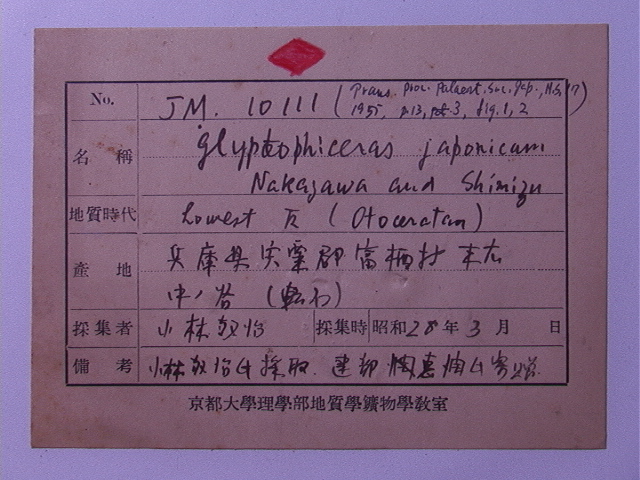 No. JM. 10111 (Trans. Proc. Palaeont. Soc. Jap., N.S., 17
1955, p.13, pl. 3, fig. 1, 2)
名稱 Glyptophiceras japonicum
Nakazawa and Shimizu
地質時代 Lowest (Otoceratan)
產地 兵庫県宍粟郡富栖村
中ノ谷 (転石)
採集者 小林 採集時 昭和28年3月 日
備考 小林 氏採取. 氏寄贈.
京都大學理學部地質學鑛物學敎室